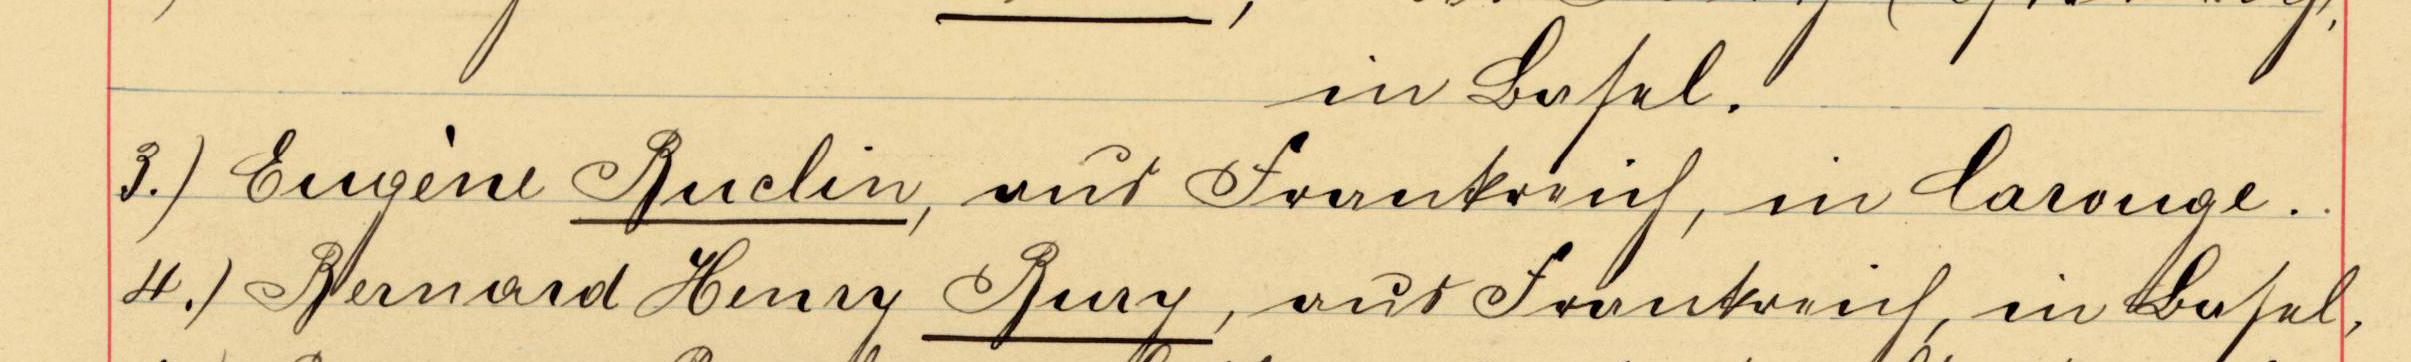 in Basel.
3.) Eugène Buclin, aus Frankreich, in Carouge.
4.) Bernard Henry Bury, aus Frankreich, in Basel,